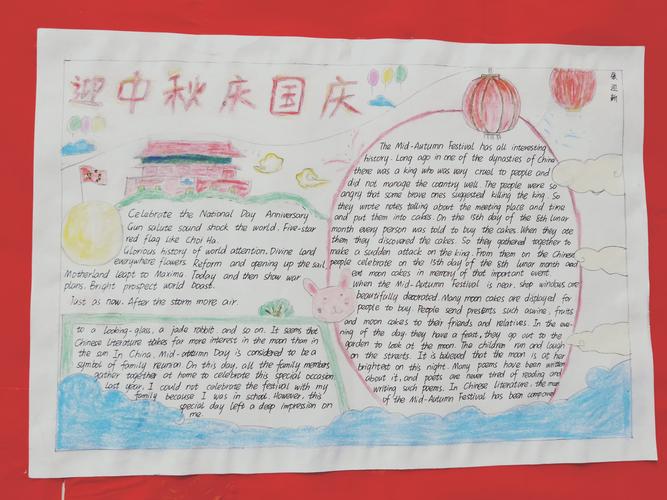 迎中秋庆国庆
张迎新
Celebrate the National Day Anniversary
Gun salute sound shock the world. Five-star
red flag like Choi Ha.
Glorious history of world attention. Divine land
everywhere flowers. Reform and opening up the sail
Motherland leapt to Maxima. Today and then show war
plans. Bright prospect world boast.
Just as now. After the storm more air.
The Mid-Autumn Festival has all interesting
history. Long ago in one of the dynasties of China
there was a king who was very cruel to people and
did not manage the country well. The people were so
angry that some brave ones suggested killing the king. So
they wrote notes telling about the meeting place and time
and put them into cakes. On the 15th day of the 8th lunar
month every person was told to buy the cakes. When they ate
them they discovered the cakes. So they gathered together to
make a sudden attack on the king. From them on the Chinese
people celebrate on the 15th day of the 8th lunar month and
eat moon cakes in memory of that important event.
When the Mid-Autumn Festival is near, shop windows are
beautifully decorated. Many moon cakes are displayed for
people to buy. People send presents such as wine, fruits
and moon cakes to their friends and relatives. In the eve-
ning of the day they have a feast, they go out to the
garden to look at the moon. The children run and laugh
on the streets. It is believed that the moon is at her
brightest on this night. Many poems have been written
about it, and poets are never tired of reading and
writing such poems. In Chinese literature, the moon
of the Mid-Autumn Festival has been compared
to a looking-glass, a jade rabbit, and so on. It seems that
Chinese literature takes far more interest in the moon than in
the sun. In China, Mid-autumn Day is considered to be a
symbol of family reunion. On this day, all the family members
gather together at home to celebrate this special occasion.
Last year, I could not celebrate the festival with my
family because I was in school. However, this
special day left a deep impression on
me.